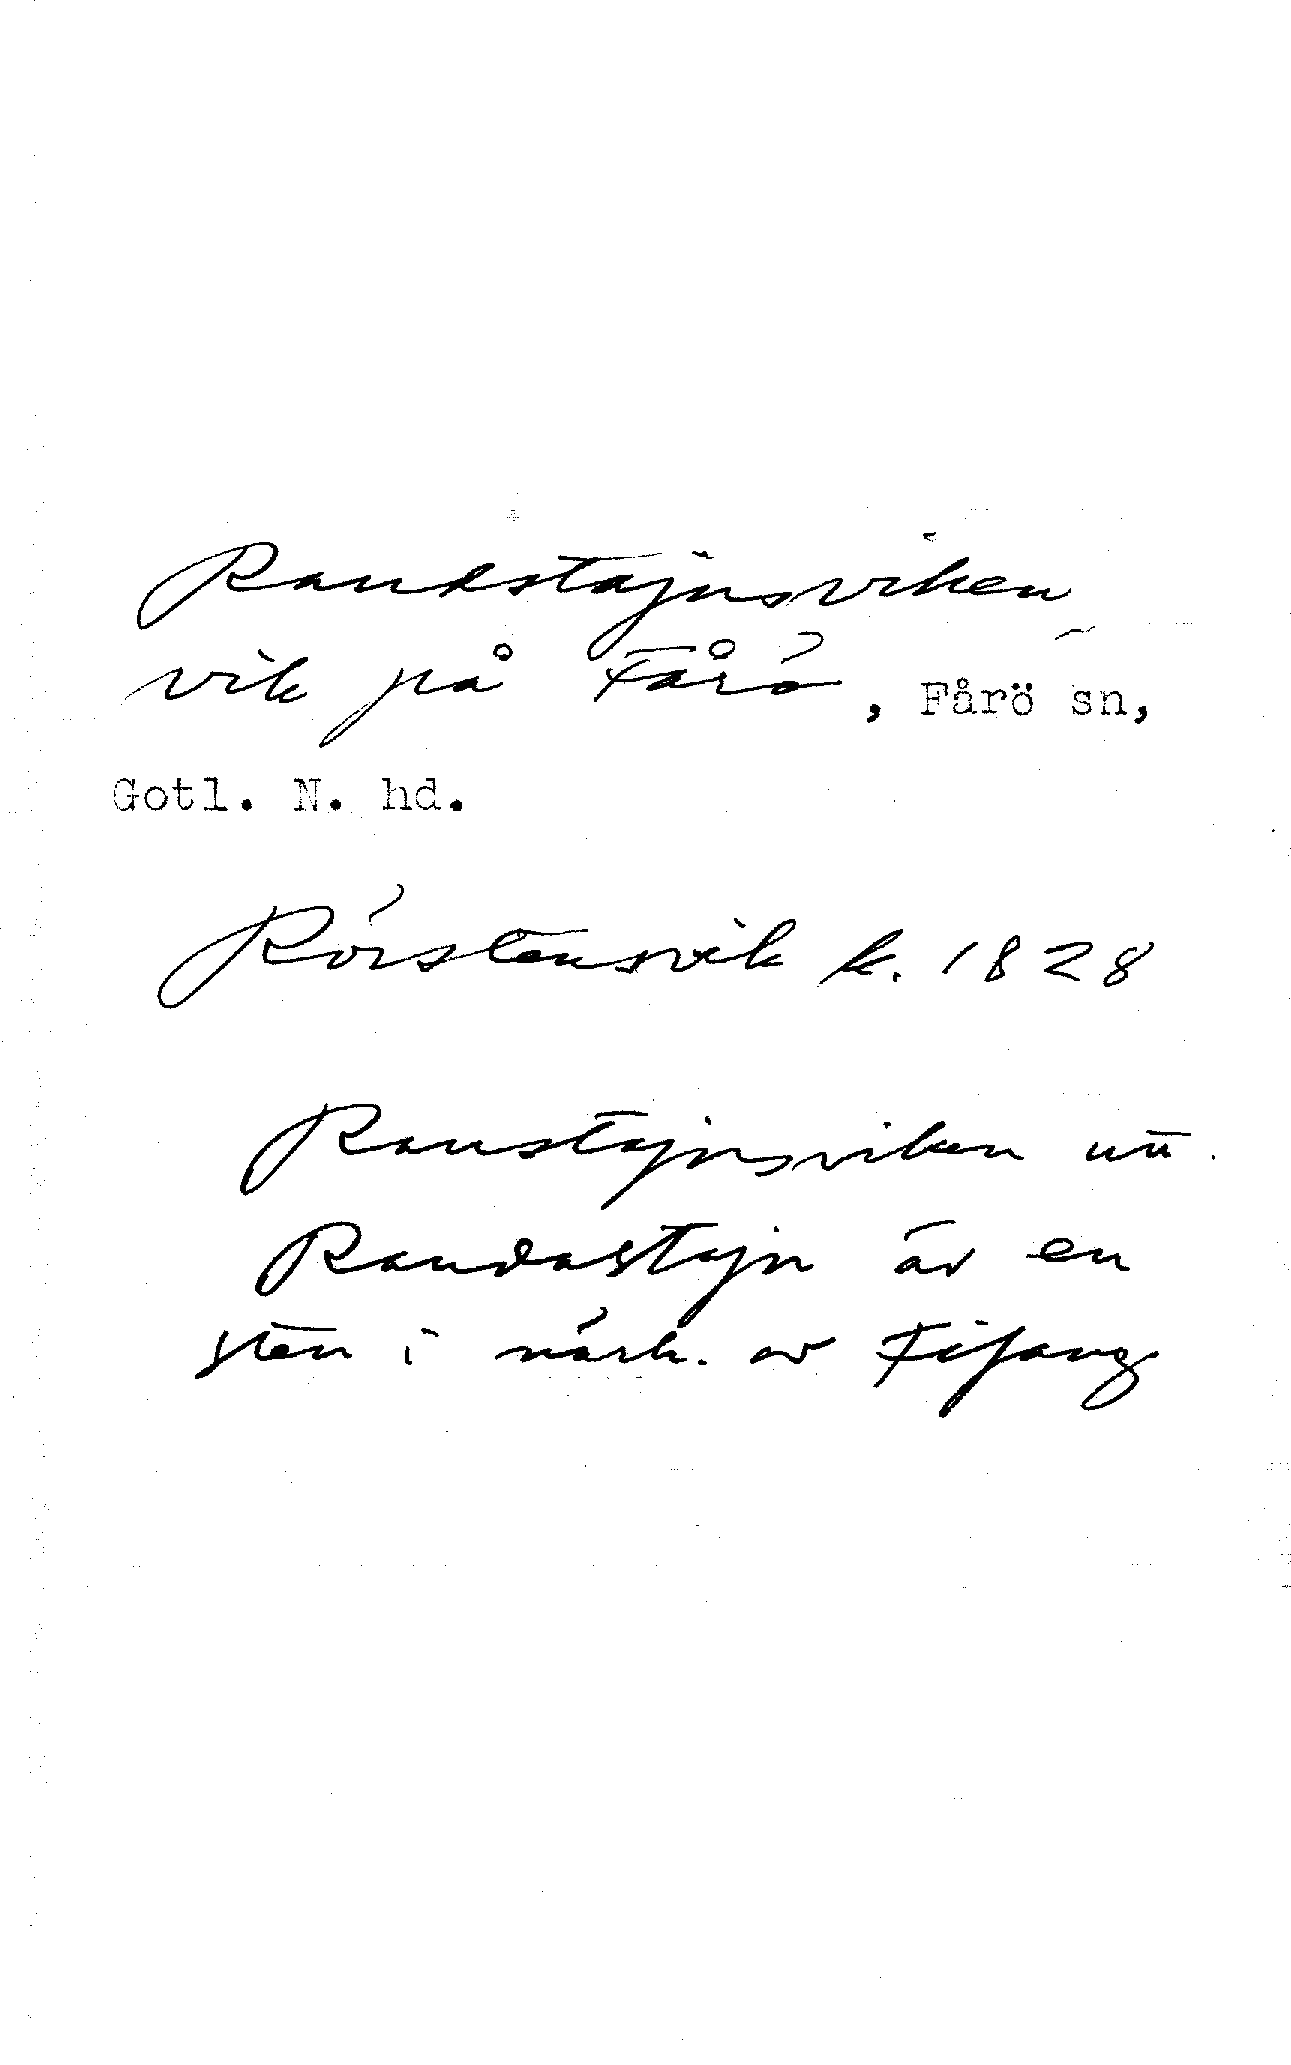 Raudstajnsviken
vik på Fårö, Fårö sn,
Gotl. N. hd.
Rörstensvik k. 1828
Raustajnsviken utt.
Raudastajn är en
sten i närh. av Fifang